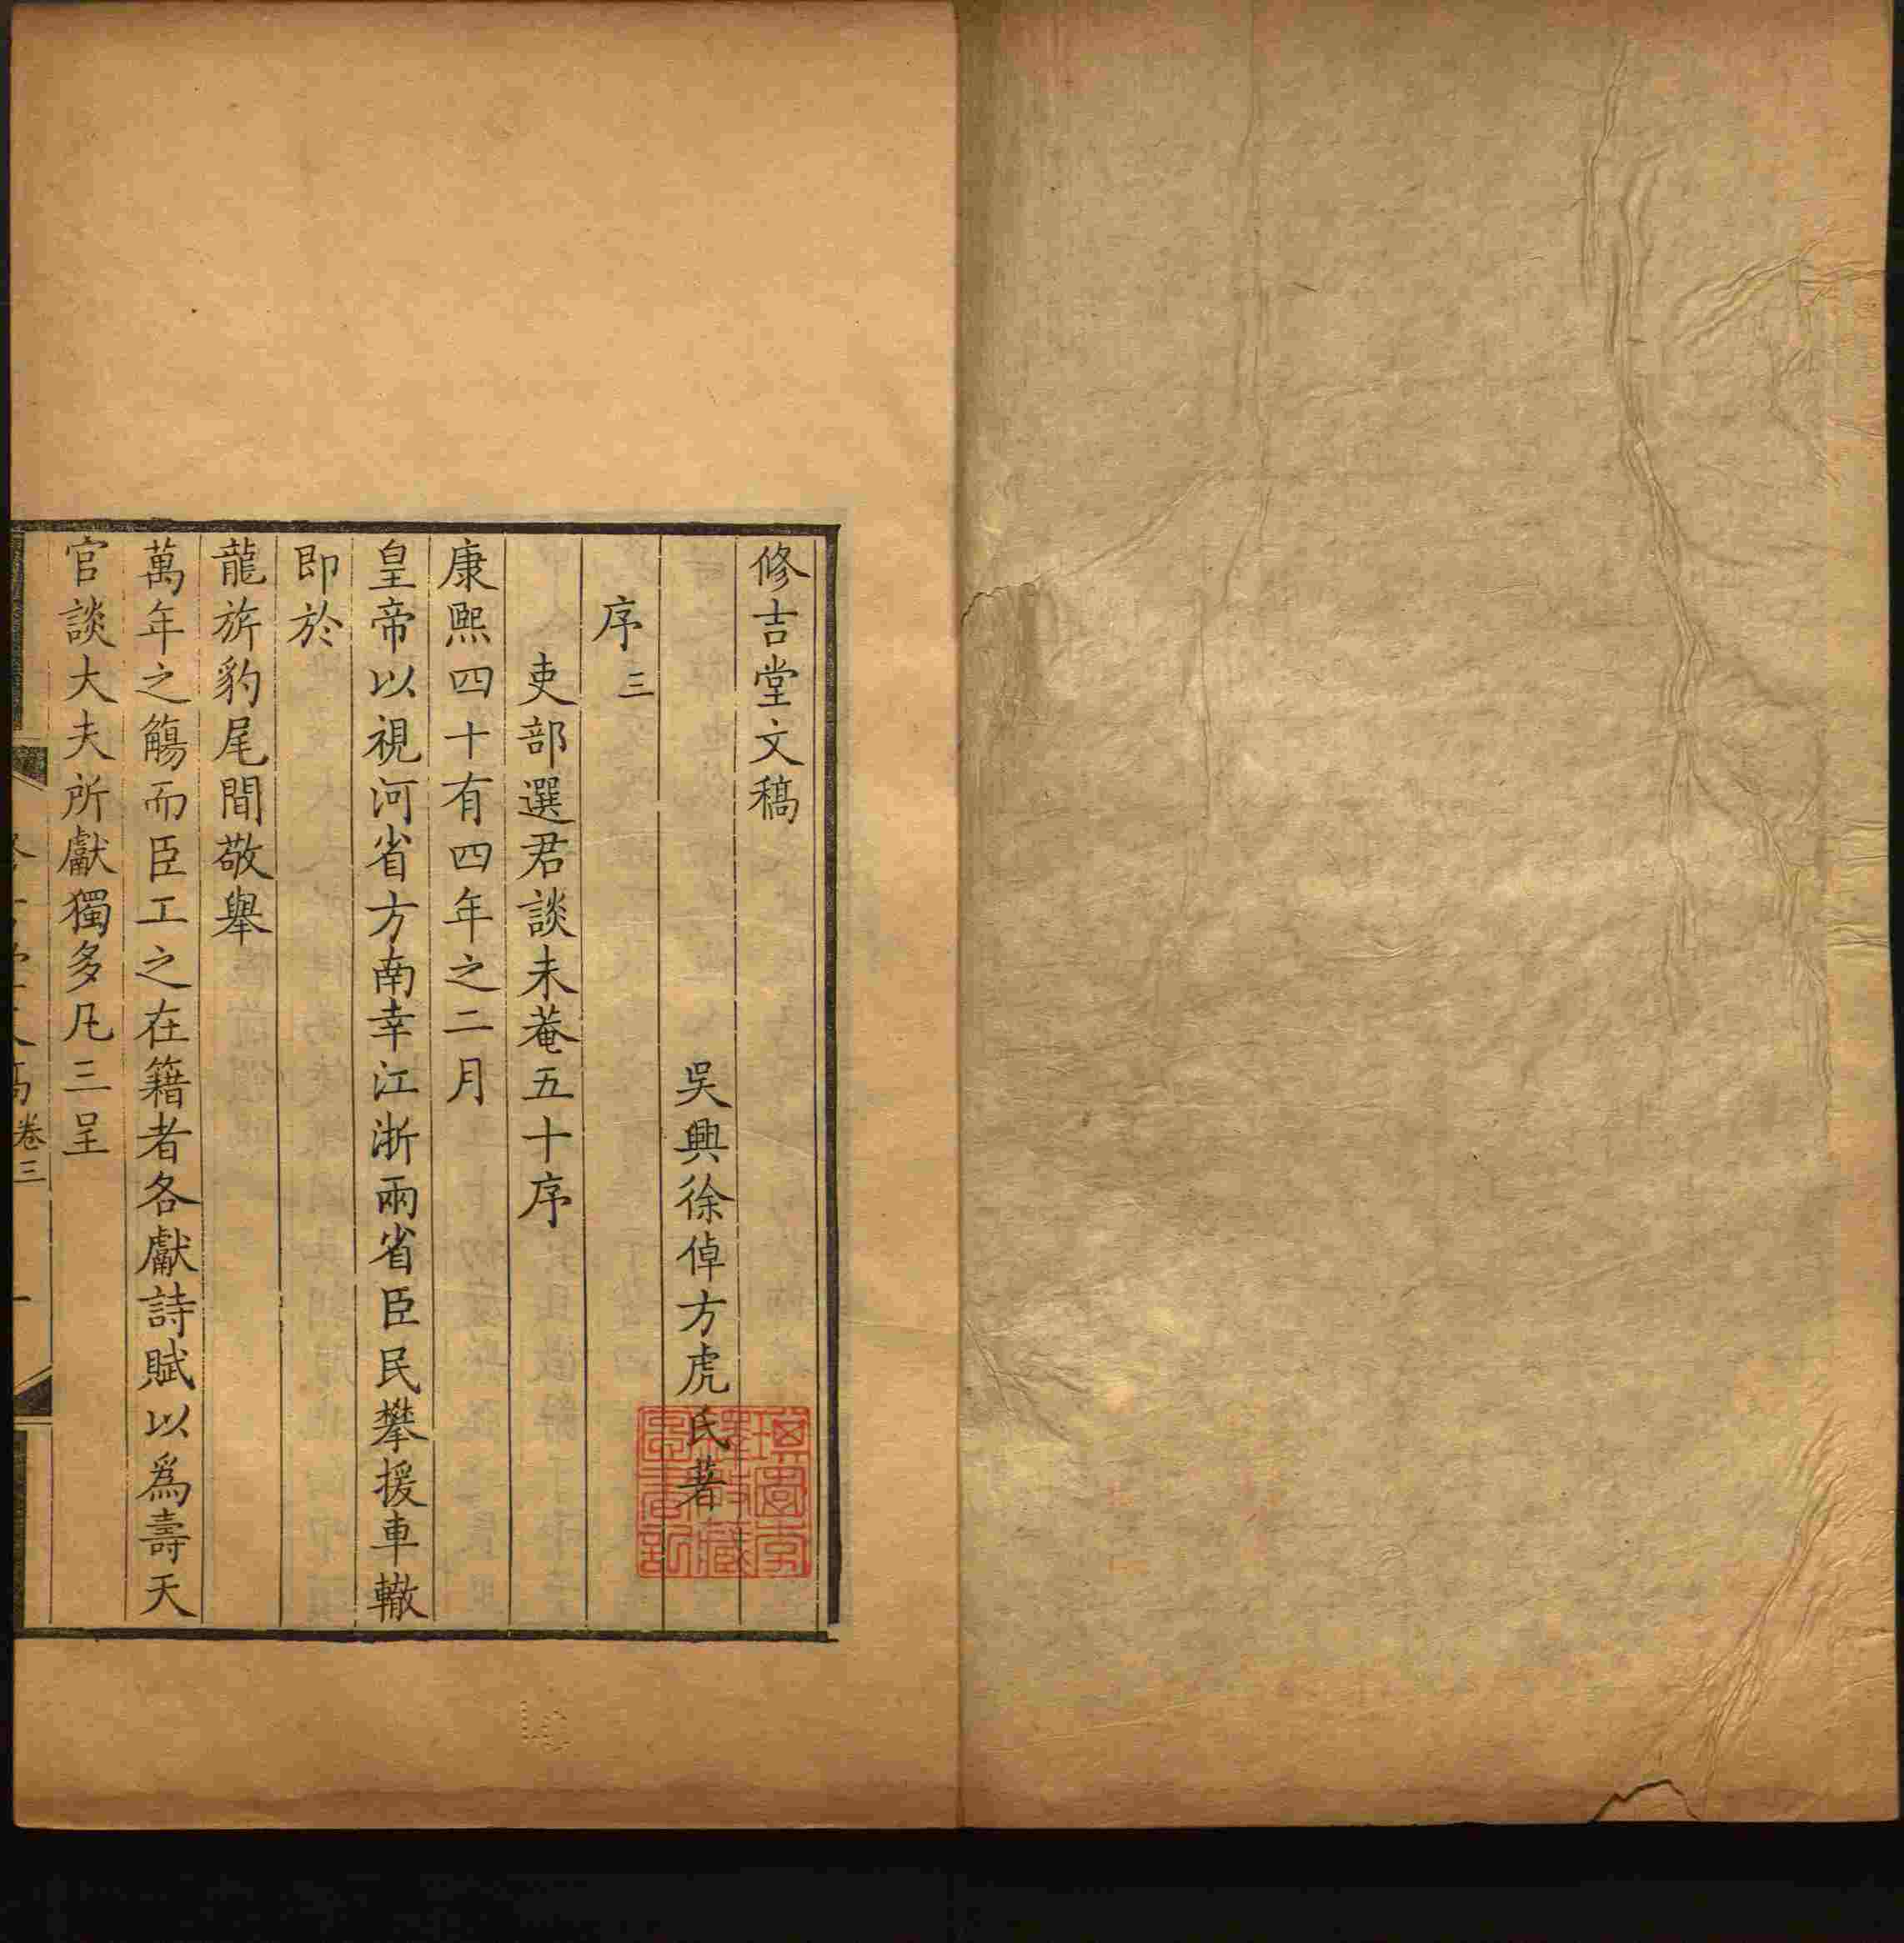 修吉堂文稿
吳興徐倬方虎氏著
序三
吏部選君談未菴五十序
康熙四十有四年之二月
皇帝以視河省方南幸江浙兩省臣民攀援車轍
即於
龍旂豹尾間敬舉
萬年之觴而臣工之在籍者各獻詩賦以為壽天
官談大夫所獻獨多凡三呈
卷三
一